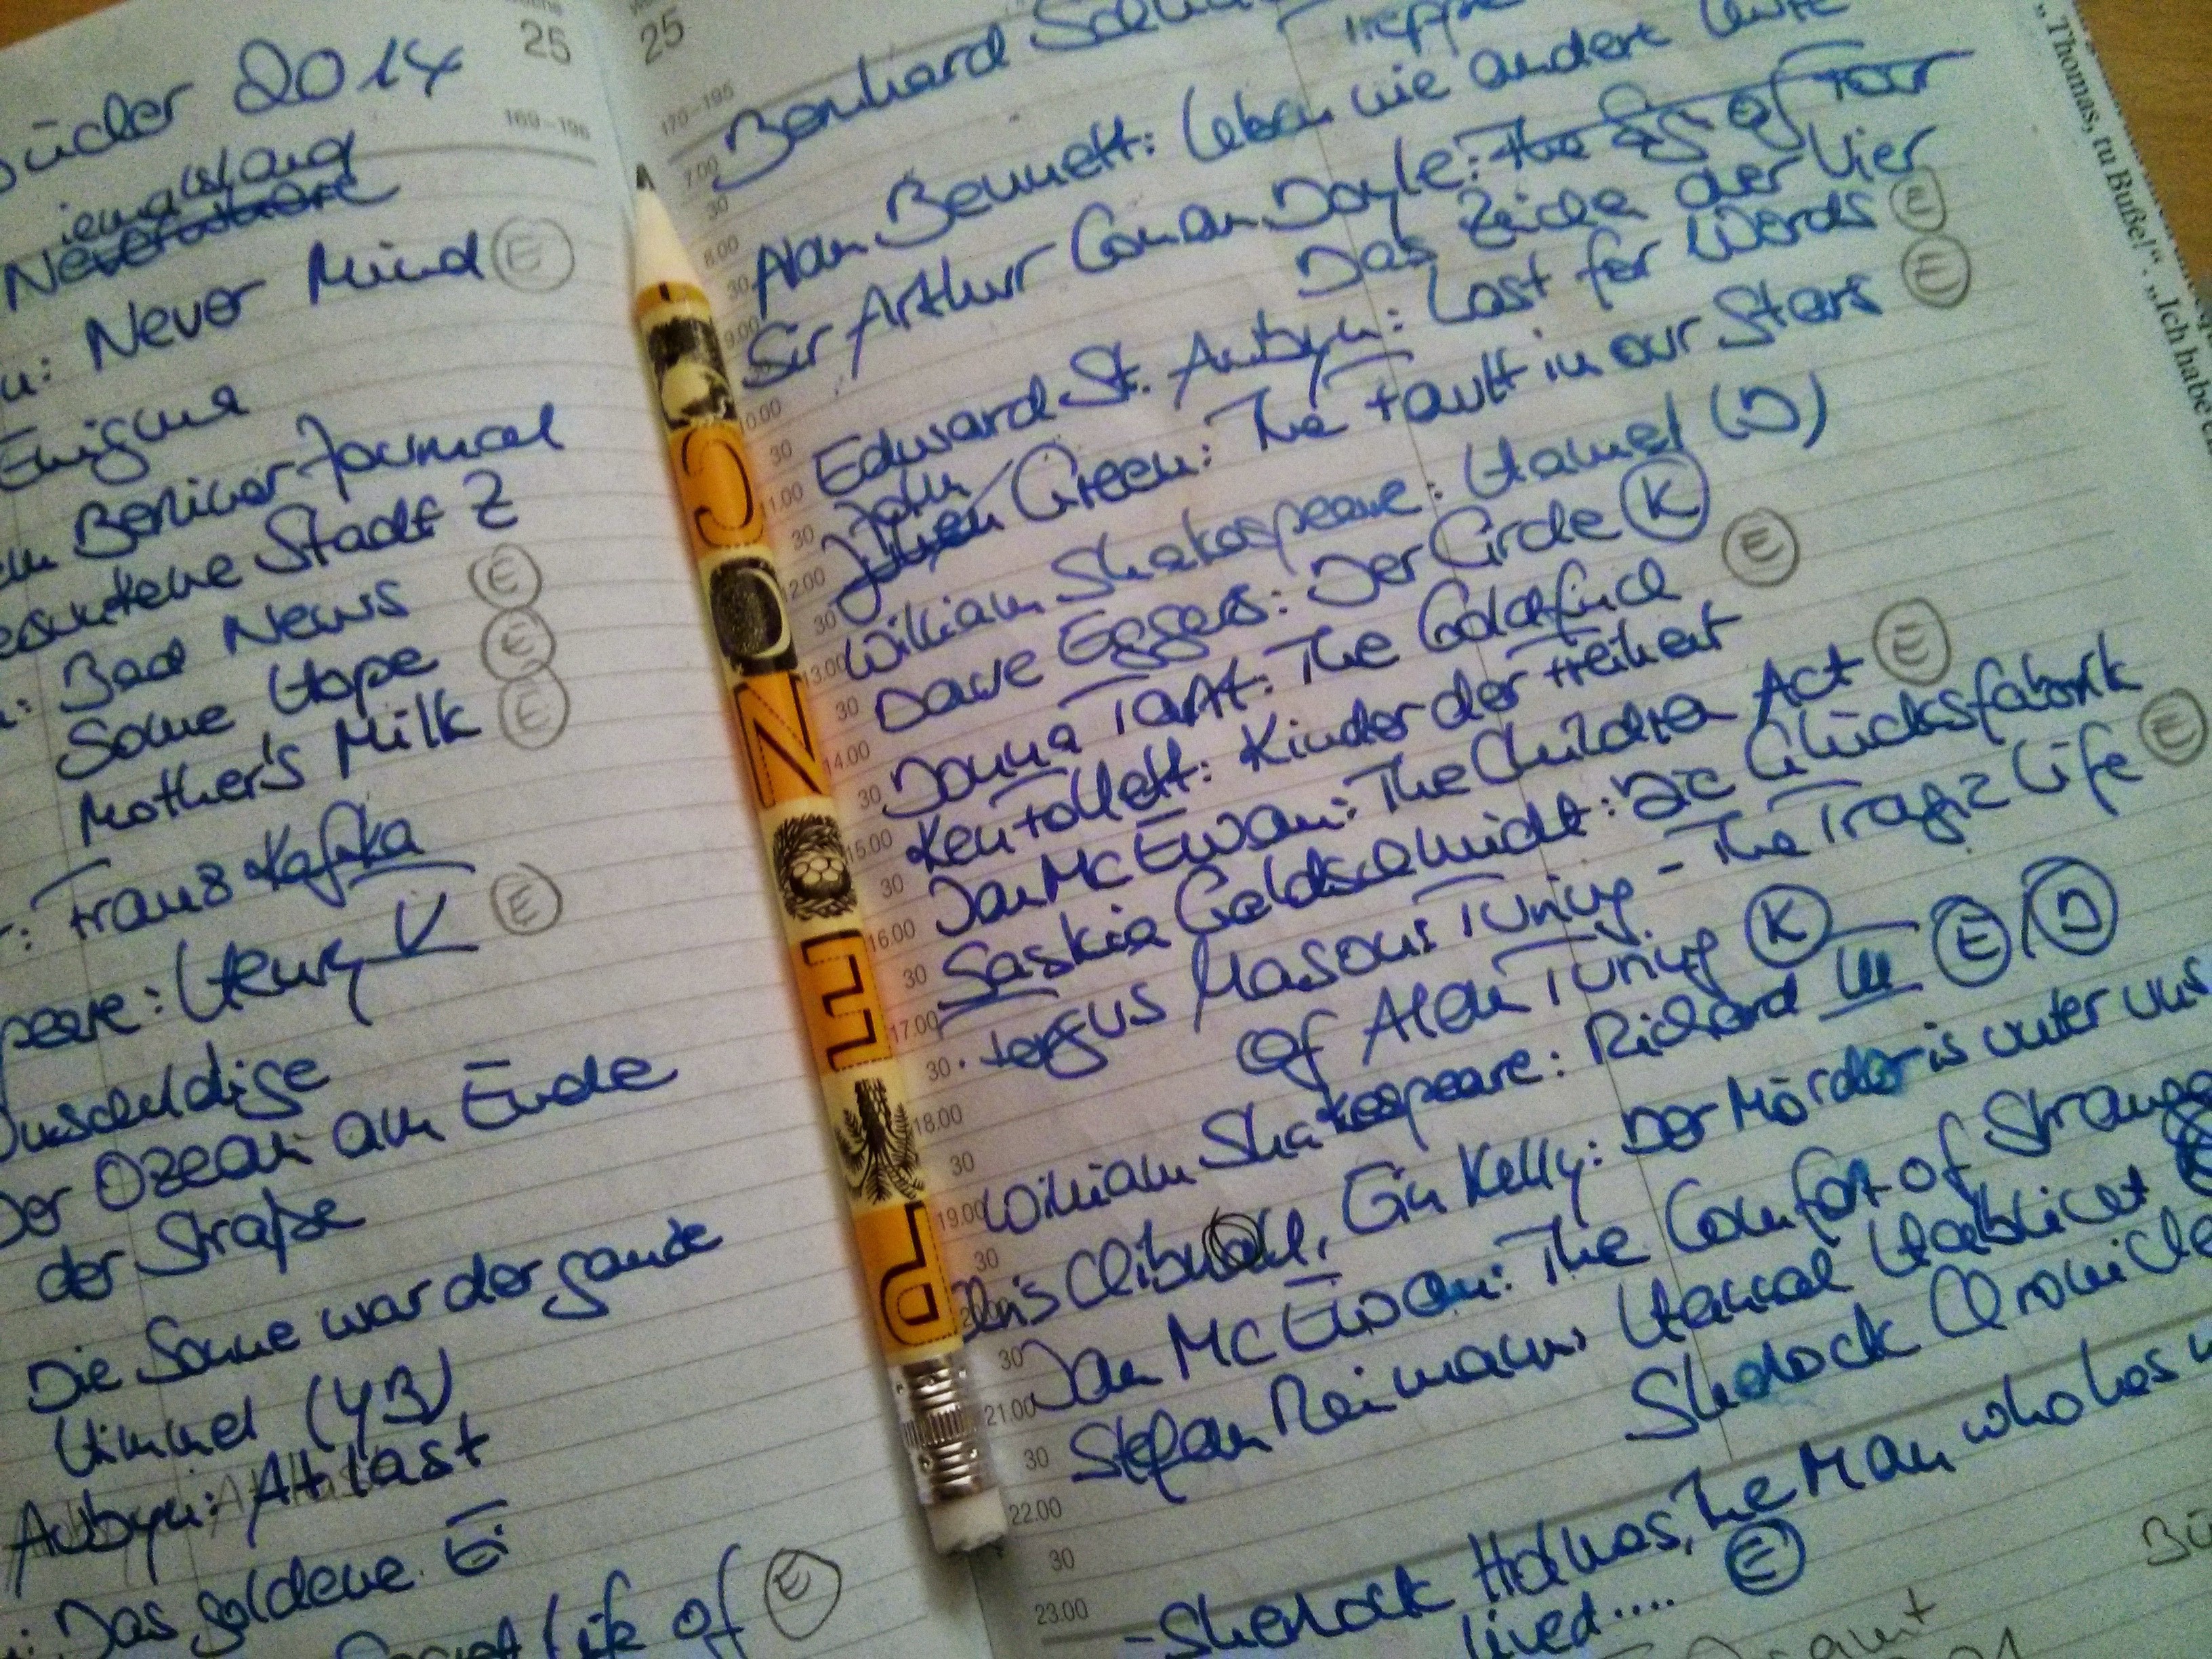 Bücher 2014
25
169–196
iemalsland
Neverwhere
Never Mind (E)
Enigma
Berliner Journal
versunkene Stadt Z
Bad News (E)
Some Hope (E)
Mother's Milk (E)
Franz Kafka
peare: Henry V (E)
Unschuldige
Der Ozean am Ende
der Straße
Die Sonne war der ganze
Himmel (YB)
Aubyn: At last
Das goldene Ei
Secret Life of (E)
25
170–195
Bernhard
Treppe
Alan Bennett: Leben wie andere Leute
Sir Arthur Conan Doyle: The Sign of Four
Das Zeichen der Vier
Edward St. Aubyn: Lost for Words (E)
John
Julien Green: The Fault in our Stars (E)
William Shakespeare: Hamlet (D)
Dave Eggers: Der Circle (K)
Donna Tartt: The Goldfinch (E)
Ken Follett: Kinder der Freiheit
Ian McEwan: The Children Act (E)
Saskia Goldschmidt: Die Glücksfabrik
Fergus Mason: Turing - The Tragic Life (E)
of Alan Turing (K)
William Shakespeare: Richard III (E)/(D)
Chris Clibnall, Erin Kelly: Der Mörder is unter uns
Ian McEwan: The Comfort of Strange
Stefan Reimann: Hamal Hablicht
Sherlock Chronicle
- Sherlock Holmes, The Man who has
lived.... (E)
7.00
30
8.00
30
9.00
10.00
30
11.00
30
12.00
30
13.00
30
14.00
30
15.00
30
16.00
30
17.00
30
18.00
30
19.00
30
30
21.00
30
22.00
30
23.00
PENCO
„Thomas, tu Buße!“. „Ich habe